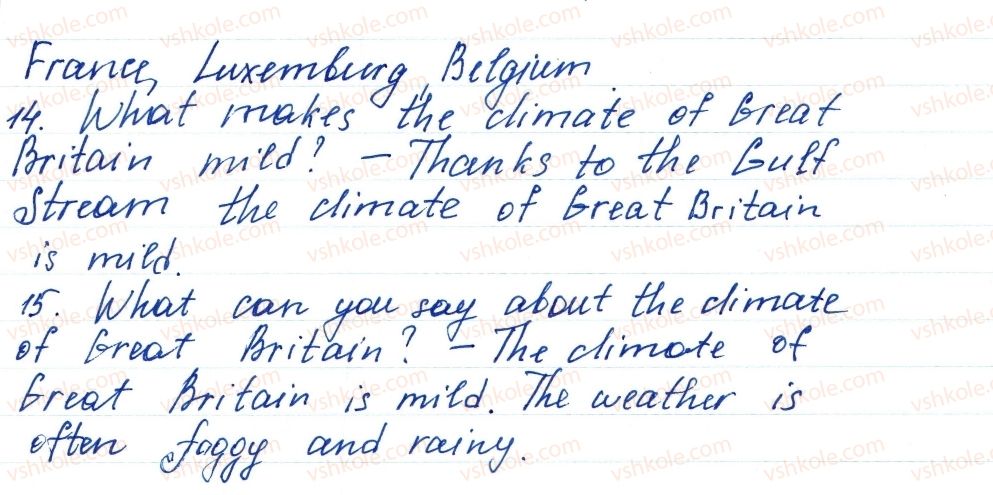 France, Luxemburg, Belgium
14. What makes the climate of Great
Britain mild? – Thanks to the Gulf
Stream the climate of Great Britain
is mild.
15. What can you say about the climate
of Great Britain? – The climate of
Great Britain is mild. The weather is
often foggy and rainy.